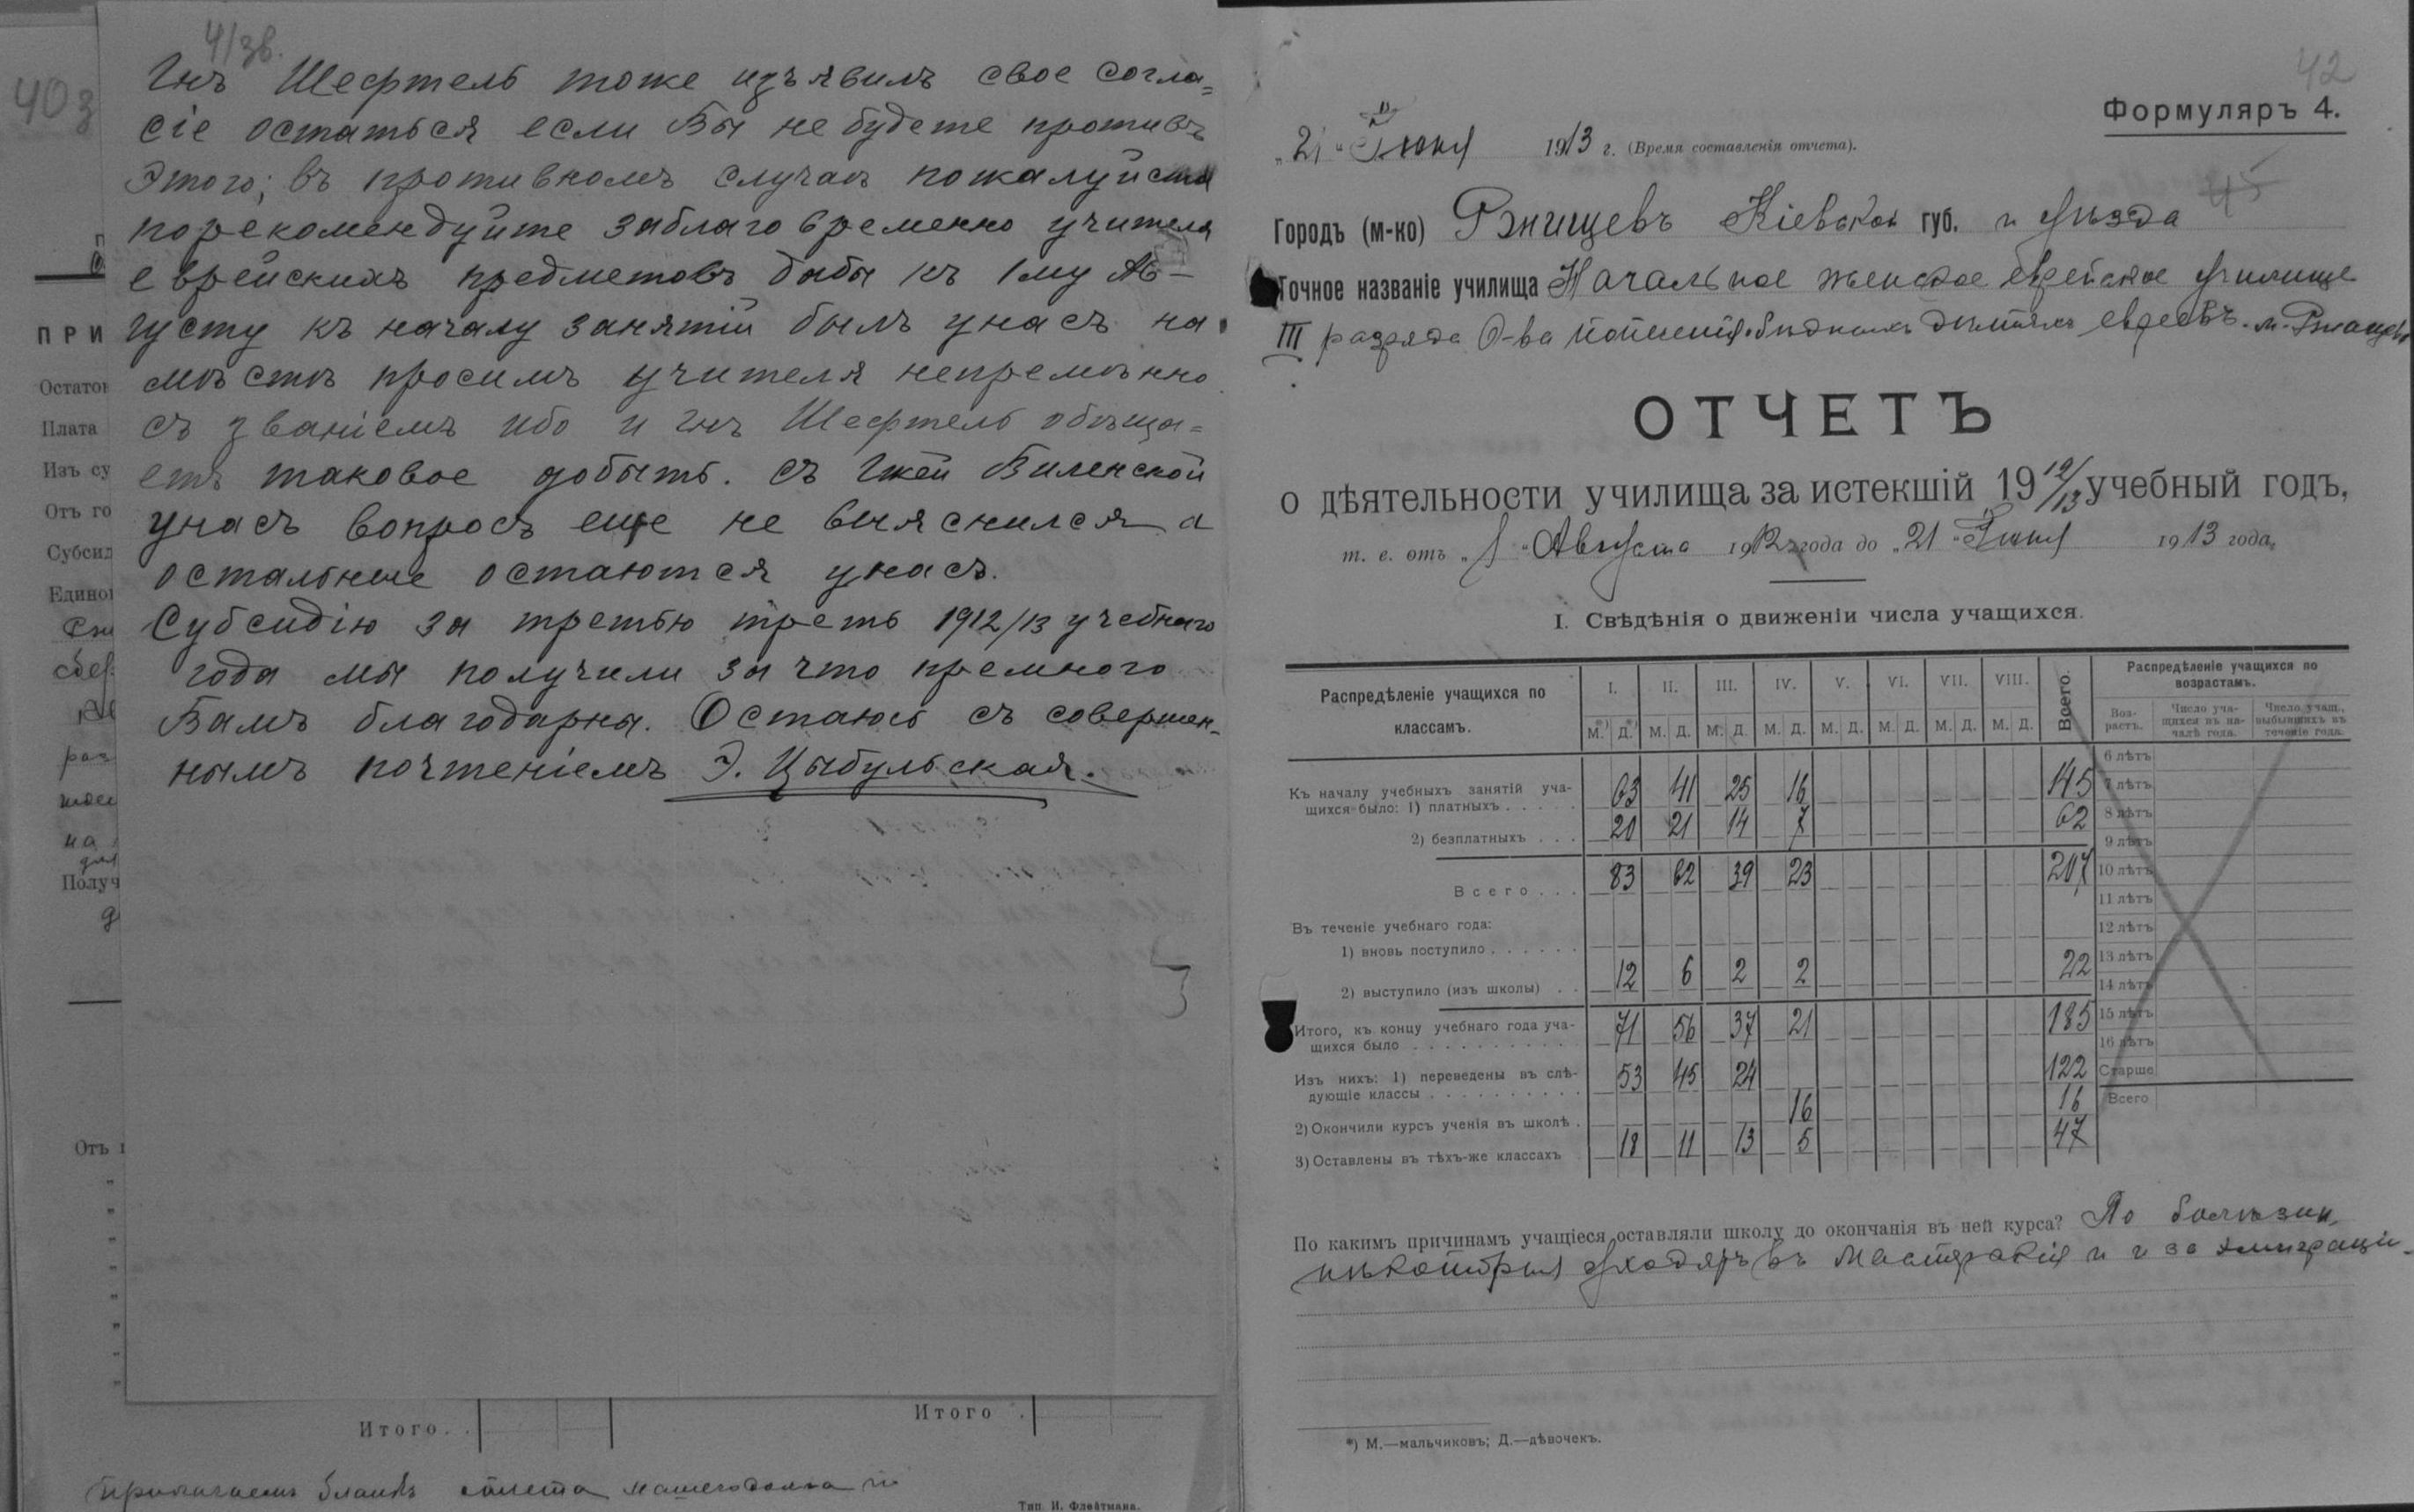 41зв.
403
Гнъ Шефтель тоже изъявилъ свое согла=
сіе остаться если Вы не будете противъ
этого; въ противномъ случаѣ пожалуйста
порекомендуйте заблаговременно учителя
еврейскихъ предметовъ дабы къ 1му Ав-
густу къ началу занятій былъ унасъ на
мѣстѣ просимъ учителя непремѣнно
съ званіемъ ибо и Гнъ Шефтель обѣща=
етъ таковое добыть. Съ Гжей Виленской
унасъ вопросъ еще не выяснился а
остальные остаются унасъ.
Субсидію за третью треть 1912/13 учебнаго
года мы получили за что премного
Вамъ благодарны. Остаюсь съ совершен-
нымъ почтеніемъ Э. Цыбульская.
ПРИ
Остаток
Плата
Изъ су
Отъ го
Субсид
Единов
Получ
Отъ
Итого. .
Итого .
Тип. И. Флейтмана.
42
Формуляръ 4.
„21“ Іюня 1913 г. (Время составленія отчета).
45
Городъ (м-ко) Ржищевъ Кіевской губ. и уѣзда
Точное названіе училища Начальное женское еврейское училище
III разряда О-ва попеченія бѣдныхъ дѣтяхъ евреевъ. м. Ржищевъ
ОТЧЕТЪ
о дѣятельности училища за истекшій 1912/13 учебный годъ,
т. е. отъ „1“ Августа 1912 года до „21“ Іюня 1913 года.
I. Свѣдѣнія о движеніи числа учащихся.
Распредѣленіе учащихся по классамъ. I. II. III. IV. V. VI. VII. VIII. Всего. Распредѣленіе учащихся по возрастамъ.
М.*) Д.*) М. Д. М. Д. М. Д. М. Д. М. Д. М. Д. М. Д. Воз-растъ. Число уча-щихся въ на-чалѣ года. Число учащ., выбывшихъ въ теченіе года.
6 лѣтъ
Къ началу учебныхъ занятій уча-
щихся было: 1) платныхъ . . . . . 63 41 25 16 145 7 лѣтъ
2) безплатныхъ . . . 20 21 14 7 62 8 лѣтъ
9 лѣтъ
Всего . . . 83 62 39 23 207 10 лѣтъ
11 лѣтъ
Въ теченіе учебнаго года: 12 лѣтъ
1) вновь поступило . . . . . .
2) выступило (изъ школы) . . 12 6 2 2 22 13 лѣтъ
14 лѣтъ
Итого, къ концу учебнаго года уча-
щихся было . . . . . . . . . . 71 56 37 21 185 15 лѣтъ
16 лѣтъ
Изъ нихъ: 1) переведены въ слѣ-
дующіе классы . . . . . . . . . . 53 45 24 122 Старше
2) Окончили курсъ ученія въ школѣ . 16 16 Всего
3) Оставлены въ тѣхъ-же классахъ 18 11 13 5 47
По какимъ причинамъ учащіеся оставляли школу до окончанія въ ней курса? По болѣзни,
нѣкоторыя уходятъ въ мастерскія и и за эмиграціи.
*) М.—мальчиковъ; Д.—дѣвочекъ.